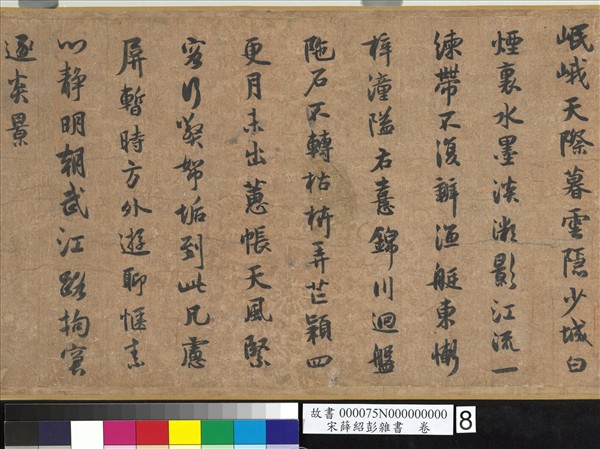 岷峨天際暮雲隱少城白
煙裏水墨淡微影江流一
練帶不復辨漁艇東慚
梓潼隘右憙錦川迴盤
陁石不轉枯枿弄芒穎四
更月未出蕙帳天風緊
客行嘆弊垢到此凡慮
屏暫時方外遊聊愜素
心靜明朝武江路拘窘
逐炎景
故書 000075N000000000
宋薛紹彭雜書 卷
8